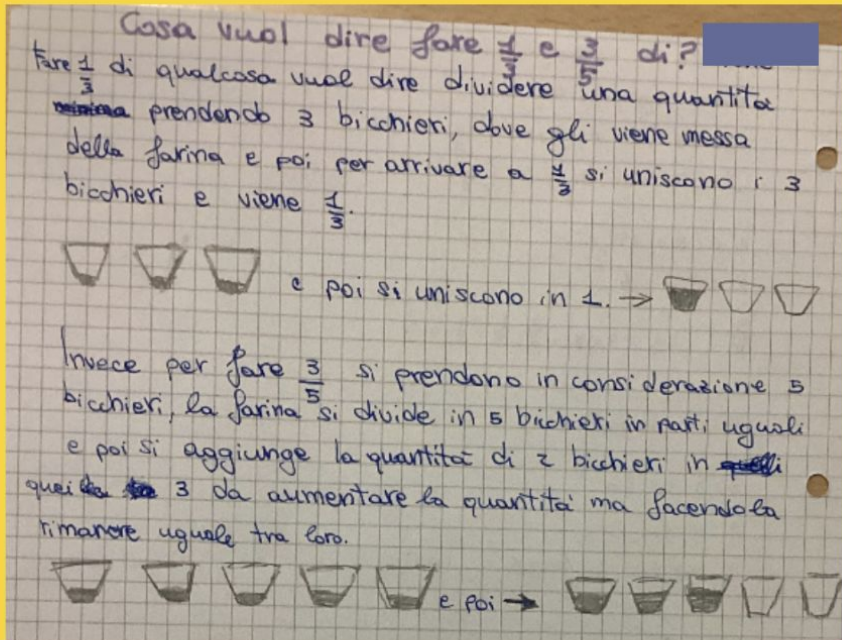 Cosa vuol dire fare 1/3 e 3/5 di?
Fare 1/3 di qualcosa vuol dire dividere una quantità
prendendo 3 bicchieri, dove gli viene messa
della farina e poi per arrivare a 1/3 si uniscono i 3
bicchieri e viene 1/3.
e poi si uniscono in 1. →
Invece per fare 3/5 si prendono in considerazione 5
bicchieri, la farina si divide in 5 bicchieri in parti uguali
e poi si aggiunge la quantità di 2 bicchieri in
quei 3 da aumentare la quantità ma facendola
rimanere uguale tra loro.
e poi →